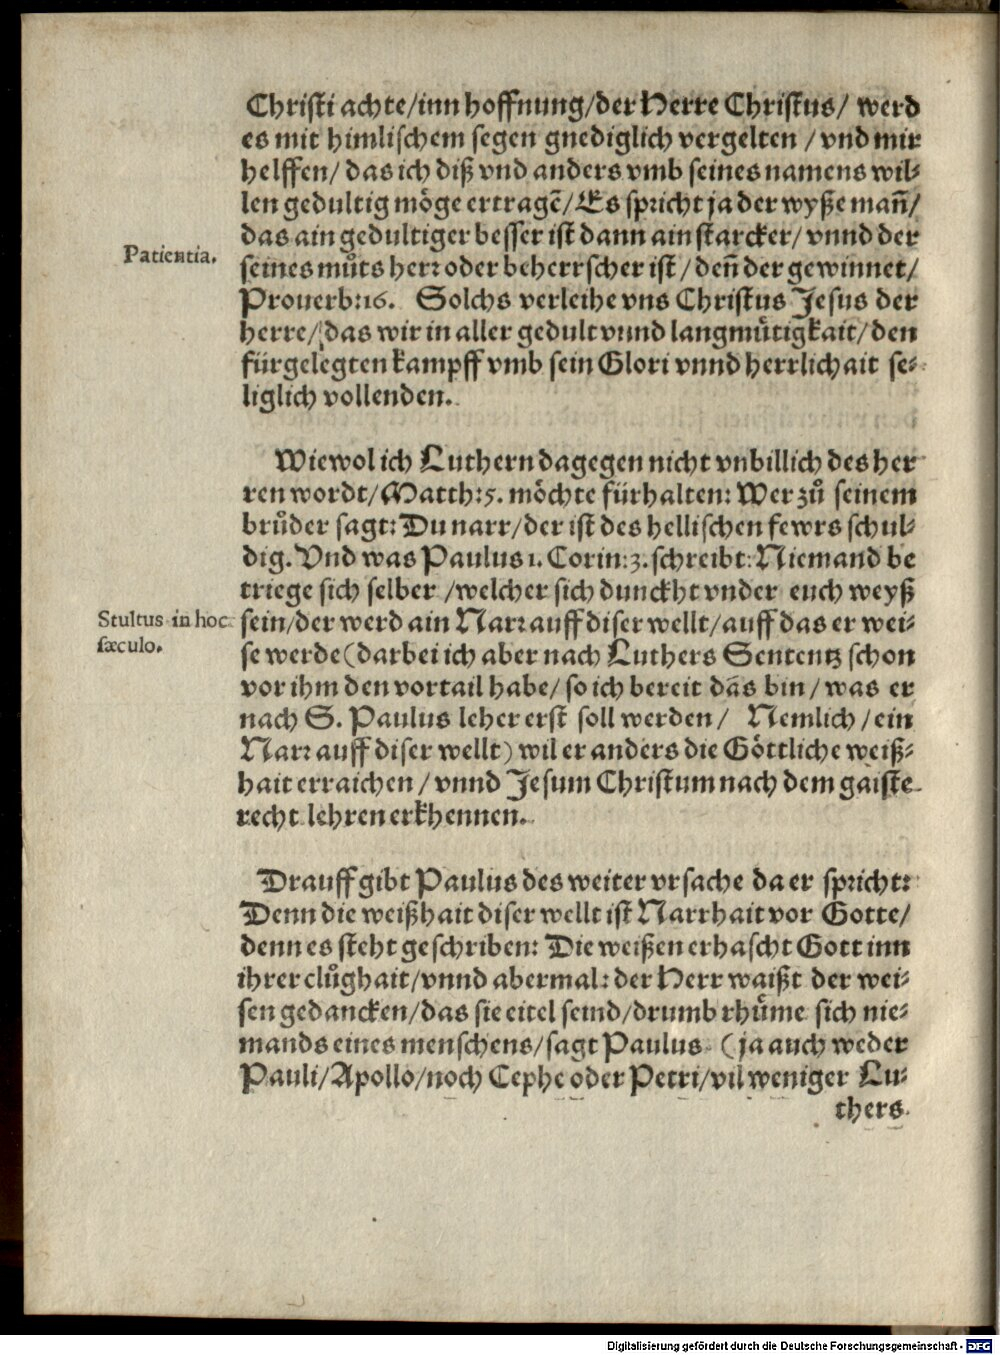 Christi achte/inn hoffnung/der Herre Christus/ werd
es mit himlischem segen gnediglich vergelten / vnd mir
helffen/ das ich diß vnd anders vmb seines namens wil⸗
len gedultig möge ertragē/ Es spricht ja der wyße man̄/
das ain gedultiger besser ist dann ain starcker/ vnnd der
Patientia.
seines můts herr oder beherrscher ist / den̄ der gewinnet/
Prouerb:16. Solchs verleihe vns Christus Jesus der
herre/ das wir in aller gedult vnnd langmůtigkait/ den
fürgelegten kampff vmb sein Glori vnnd herrlichait se⸗
liglich vollenden.
Wiewol ich Luthern dagegen nicht vnbillich des her
ren wordt/ Matth:5. möchte fürhalten: Wer zů seinem
brůder sagt: Du narr/ der ist des hellischen fewrs schul⸗
dig. Vnd was Paulus 1. Corin:3. schreibt: Niemand be
triege sich selber /welcher sich dunckht vnder euch weyß
Stultus in hoc
sæculo.
sein/der werd ain Narr auff diser wellt/ auff das er wei⸗
se werde (darbei ich aber nach Luthers Sententz schon
vor ihm den vortail habe/ so ich bereit dās bin / was er
nach S. Paulus leher erst soll werden / Nemlich / ein
Narr auff diser wellt) wil er anders die Göttliche weiß⸗
hait erraichen / vnnd Jesum Christum nach dem gaiste
recht lehren erkhennen.
Drauff gibt Paulus des weiter vrsache da er spricht:
Denn die weißhait diser wellt ist Narrhait vor Gotte/
denn es steht geschriben: Die weißen erhascht Gott inn
ihrer clůghait/ vnnd abermal: der Herr waißt der wei⸗
sen gedancken/das sie eitel seind/drumb rhůme sich nie⸗
mands eines menschens/ sagt Paulus (ja auch weder
Pauli/ Apollo/ noch Cephe oder Petri/ vil weniger Lu⸗
thers
Digitalisierung gefördert durch die Deutsche Forschungsgemeinschaft - DFG